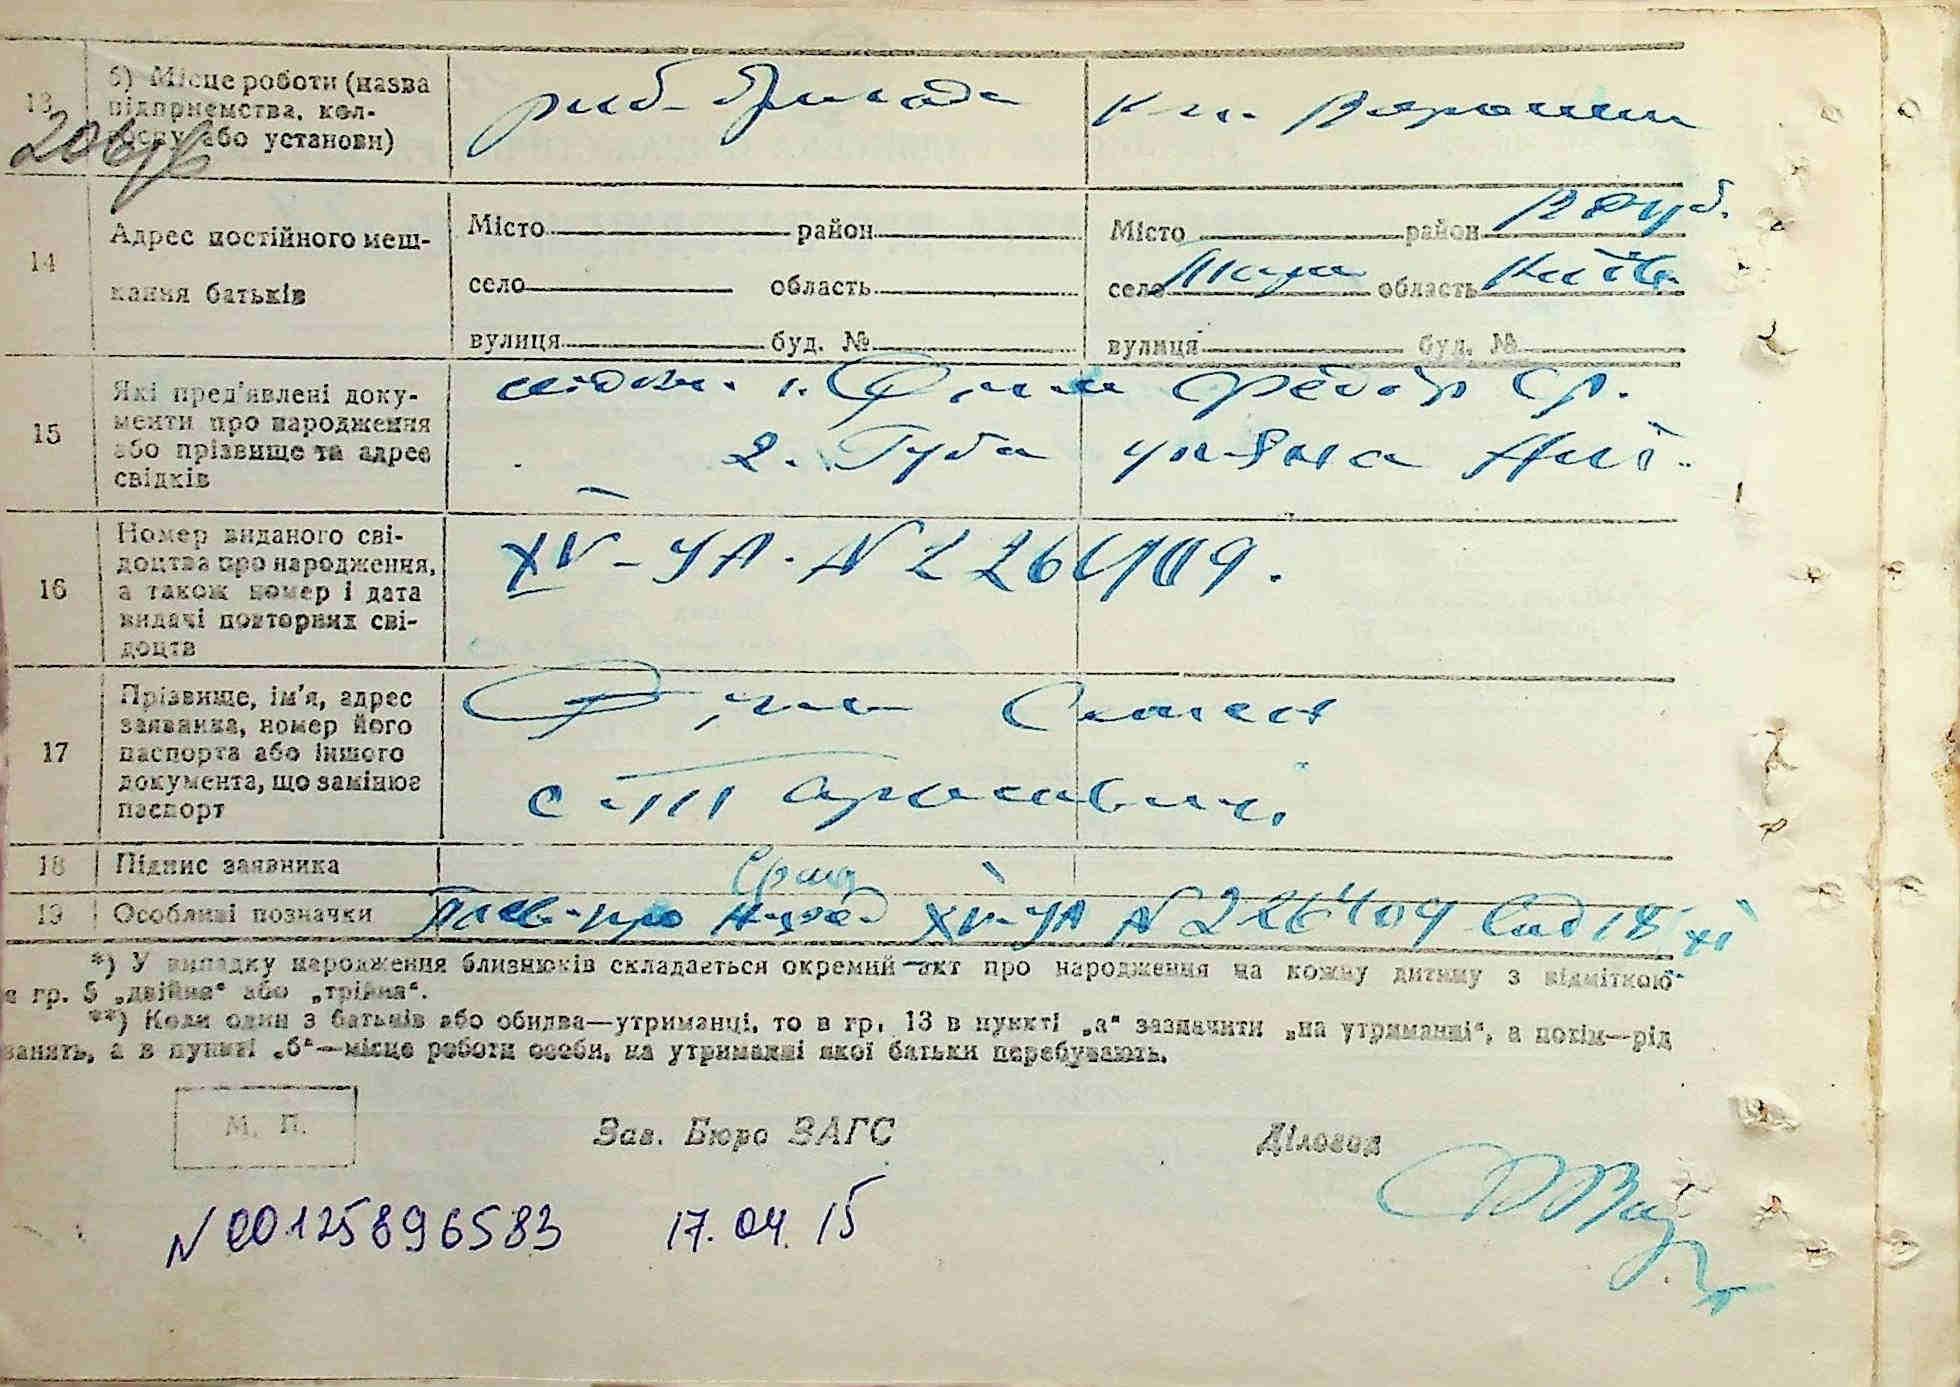 13 б) Місце роботи (назва підприємства, кол-
госпу або установи) риб-бригада К-п. Ворошил
14 Адрес постійного меш-
кання батьків
Місто район Місто район
село область село область Київ.
вулиця буд. № вулиця буд. №
15 Які пред'явлені доку-
менти про народження
або прізвище та адрес
свідків
свідки. 1. Федір Гр.
2. Губа Уляна
16 Номер виданого сві-
доцтва про народження,
а також номер і дата
видачі повторних сві-
доцтв
XV-УА. N 226409.
17 Прізвище, ім'я, адрес
заявника, номер його
паспорта або іншого
документа, що замінює
паспорт
Семен
с.
18 Підпис заявника
19 Особливі позначки XV-УА N 226409
*) У випадку народження близнюків складається окремий акт про народження на кожну дитину з відміткою
в гр. 5 „двійня“ або „трійня“.
**) Коли один з батьків або обидва—утриманці, то в гр. 13 в пункті „а“ зазначити „на утриманні“, а потім—рід
занять, а в пункті „б“—місце роботи особи, на утриманні якої батьки перебувають.
М. П. Зав. Бюро ЗАГС Діловод
N 00125896583 17.04.15